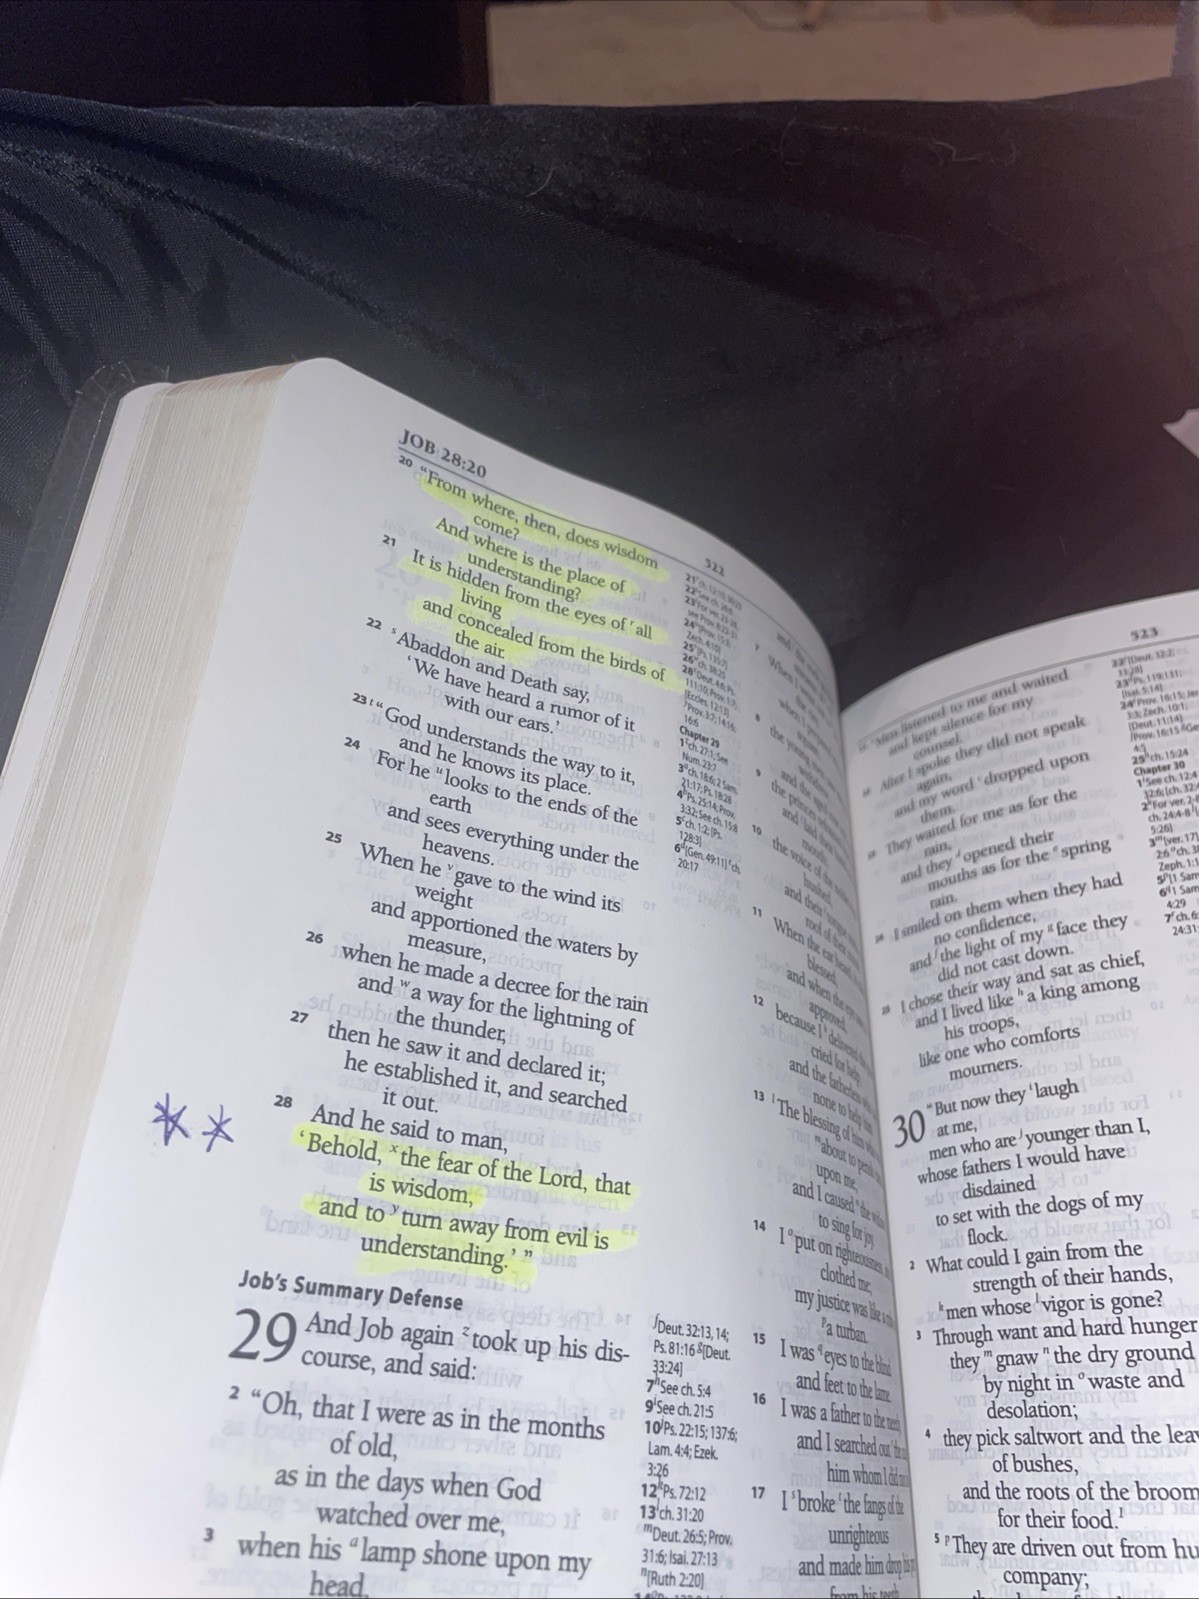 JOB 28:20
522
20 “From where, then, does wisdom
come?
And where is the place of
understanding?
21 It is hidden from the eyes of ʳall
living
and concealed from the birds of
the air.
22 ˢAbaddon and Death say,
‘We have heard a rumor of it
with our ears.’
23 ᵗ“God understands the way to it,
and he knows its place.
24 For he ᵘlooks to the ends of the
earth
and sees everything under the
heavens.
25 When he ᵛgave to the wind its
weight
and apportioned the waters by
measure,
26 when he made a decree for the rain
and ʷa way for the lightning of
the thunder,
27 then he saw it and declared it;
he established it, and searched
it out.
28 And he said to man,
‘Behold, ˣthe fear of the Lord, that
is wisdom,
and to ʸturn away from evil is
understanding.’ ”
Job’s Summary Defense
29 And Job again ᶻtook up his dis-
course, and said:
2 “Oh, that I were as in the months
of old,
as in the days when God
watched over me,
3 when his ᵃlamp shone upon my
head,
Chapter 29
20:17
Deut. 32:13, 14;
Ps. 81:16 [Deut.
33:24]
7 See ch. 5:4
9 See ch. 21:5
10 Ps. 22:15; 137:6;
Lam. 4:4; Ezek.
3:26
12 Ps. 72:12
13 ch. 31:20
Deut. 26:5; Prov.
31:6; Isai. 27:13
[Ruth 2:20]
7 When I
8
9
10 the voice of the
11 When the ear
blessed,
and when the eye
approved,
12 because I
cried for help,
and the fatherless
none to help
13 The blessing of him
about to
upon me,
and I caused
to sing for joy.
14 I put on righteousness,
clothed me;
my justice was like a
a turban.
15 I was eyes to the blind
and feet to the lame.
16 I was a father to the needy,
and I searched out
him whom I did not
17 I broke the fangs of the
unrighteous
and made him drop his
from his teeth.
523
“Men listened to me and waited
and kept silence for my
counsel.
After I spoke they did not speak
again,
and my word dropped upon
them.
They waited for me as for the
rain,
and they opened their
mouths as for the spring
rain.
I smiled on them when they had
no confidence,
and the light of my face they
did not cast down.
25 I chose their way and sat as chief,
and I lived like ʰa king among
his troops,
like one who comforts
mourners.
30 “But now they ⁱlaugh
at me,
men who are ʲyounger than I,
whose fathers I would have
disdained
to set with the dogs of my
flock.
2 What could I gain from the
strength of their hands,
ᵏmen whose ˡvigor is gone?
3 Through want and hard hunger
they ᵐgnaw ⁿthe dry ground
by night in ᵒwaste and
desolation;
4 they pick saltwort and the lea
of bushes,
and the roots of the broom
for their food.¹
5 ᵖThey are driven out from hu
company;
25 ch. 15:24
Chapter 30